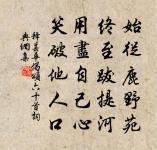 始從鹿野苑
終至跋提河
用盡自己心
笑破他人口
釋曇華偈頌六十首詞
典網集